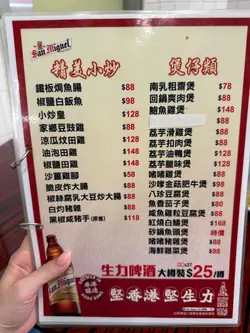 San Miguel
精美小炒
鐵板焗魚腸 $88
椒鹽白飯魚 $98
小炒皇 $128
家鄉豆豉雞 $88
涼瓜炆田雞 $128
油泡田雞 $148
椒鹽田雞 $148
沙薑雞腳 $58
脆皮炸大腸 $88
椒鹽豆腐 $88
白灼豬雜 $88
黑椒咸豬手 $118
煲仔類
南乳粗齋煲 $78
回鍋爽肉煲 $88
鮑魚雞煲 $198
$88
荔芋滑雞煲 $88
荔芋扣肉煲 $88
荔芋油鴨煲 $128
荔芋臘味煲 $128
啫啫雞煲 $88
沙嗲金菇肥牛煲 $98
八珍豆腐煲 $88
魚香茄子煲 $88
咸魚雞粒豆腐煲 $88
紅燒白鱔煲 $168
砂鍋魚頭煲 時價
啫啫豬雜煲 $88
海鮮雜菜煲 $98
生力啤酒 大樽裝 $25/樽
San Miguel
堅香港堅生力